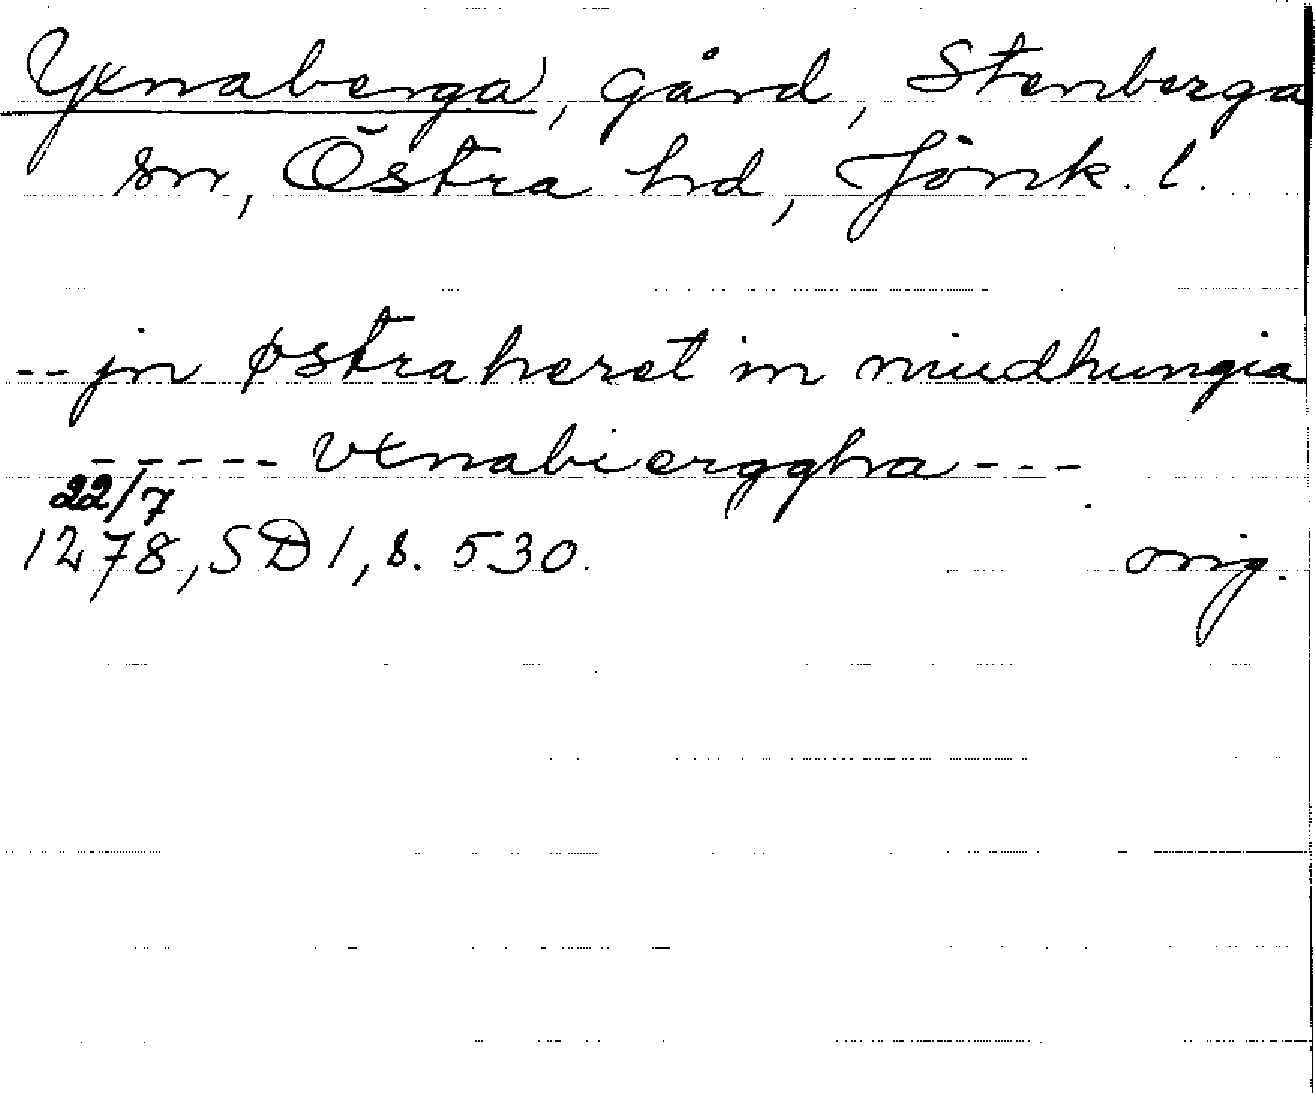 Yxnaberga, gård, Stenberga
sn, Östra hd, Jönk. l.
-- jn østraheret in niudhungia
------ vxnabierggha ---
22/7
1278, SD 1, s. 530.
orig.